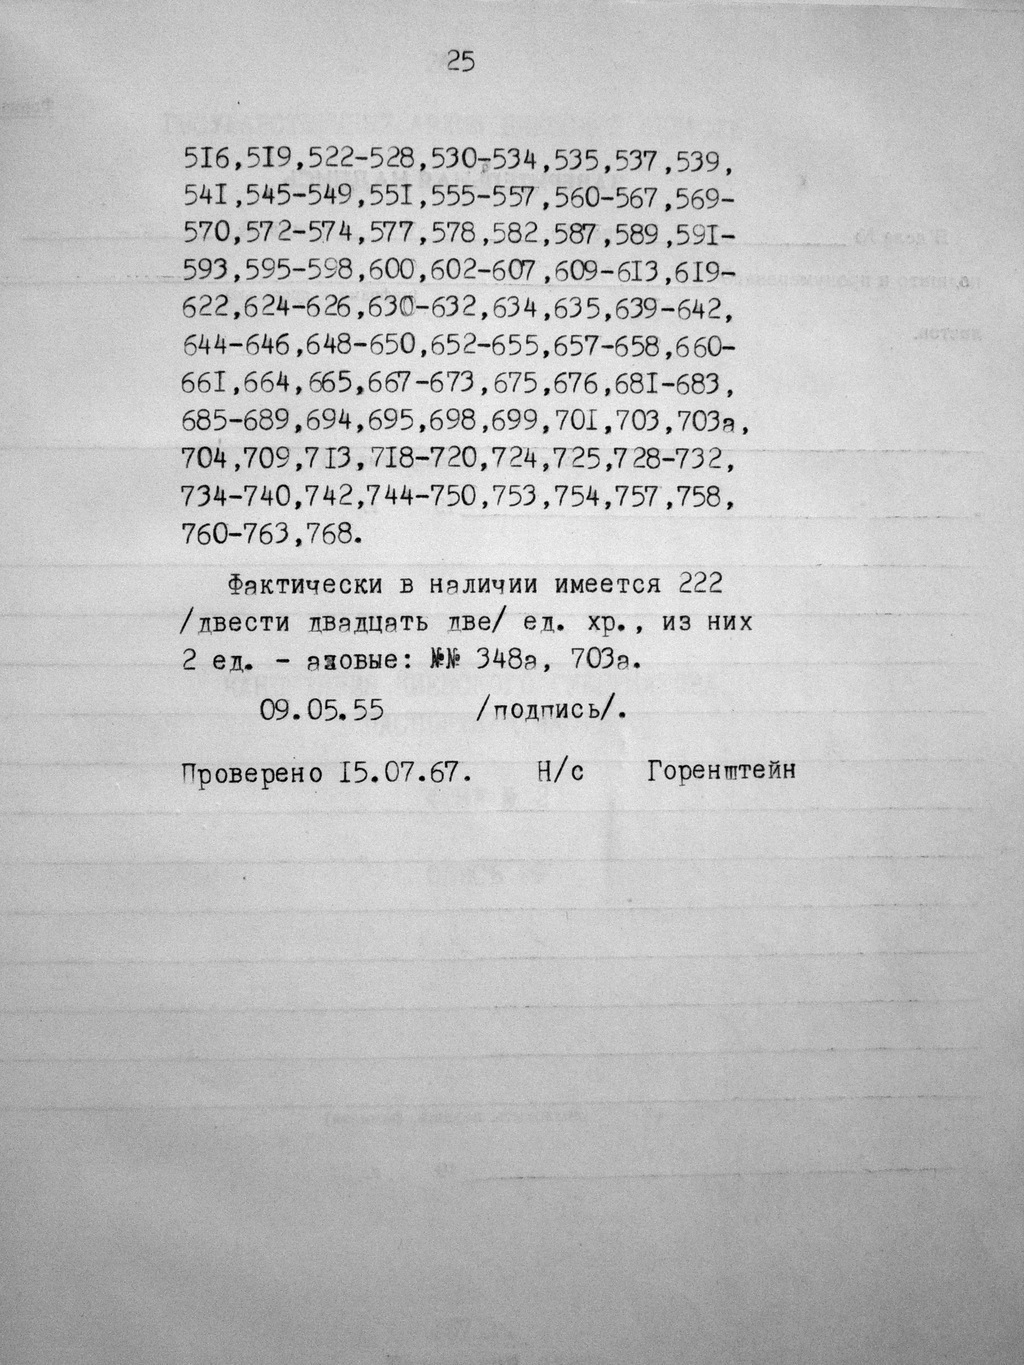 25
516,519,522-528,530-534,535,537,539,
541,545-549,551,555-557,560-567,569-
570,572-574,577,578,582,587,589,591-
593,595-598,600,602-607,609-613,619-
622,624-626,630-632,634,635,639-642,
644-646,648-650,652-655,657-658,660-
661,664,665,667-673,675,676,681-683,
685-689,694,695,698,699,701,703,703а,
704,709,713,718-720,724,725,728-732,
734-740,742,744-750,753,754,757,758,
760-763,768.
Фактически в наличии имеется 222
/двести двадцать две/ ед. хр., из них
2 ед. - азовые: №№ 348а, 703а.
09.05.55 /подпись/.
Проверено 15.07.67. Н/с Горенштейн